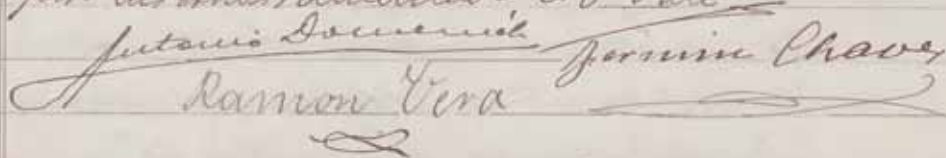 Antonio Domenech Fermin Chaves
Ramon Vera